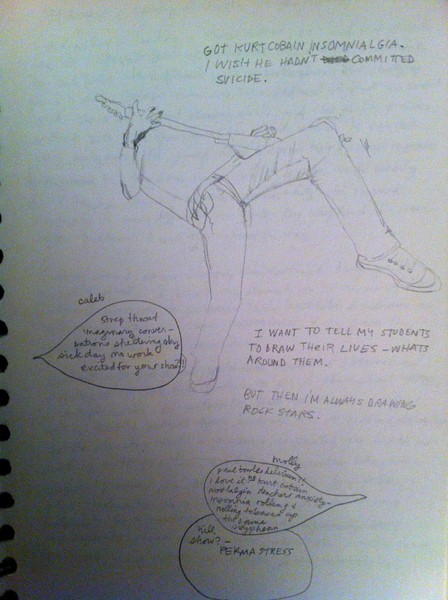 GOT KURT COBAIN INSOMNIALGIA.
I WISH HE HADN'T COMMITTED
SUICIDE.
caleb
strep throat
imaginary conver-
sations sheltering sky
sick day no work
excited for your show?!
I WANT TO TELL MY STUDENTS
TO DRAW THEIR LIVES - WHATS
AROUND THEM.
BUT THEN I'M ALWAYS DRAWING
ROCK STARS.
molly
paul bowles
I love it kurt cobain
nostalgia teachers anxiety
insomnia rolling &
rolling
the same
kill
show? -
PERMA STRESS